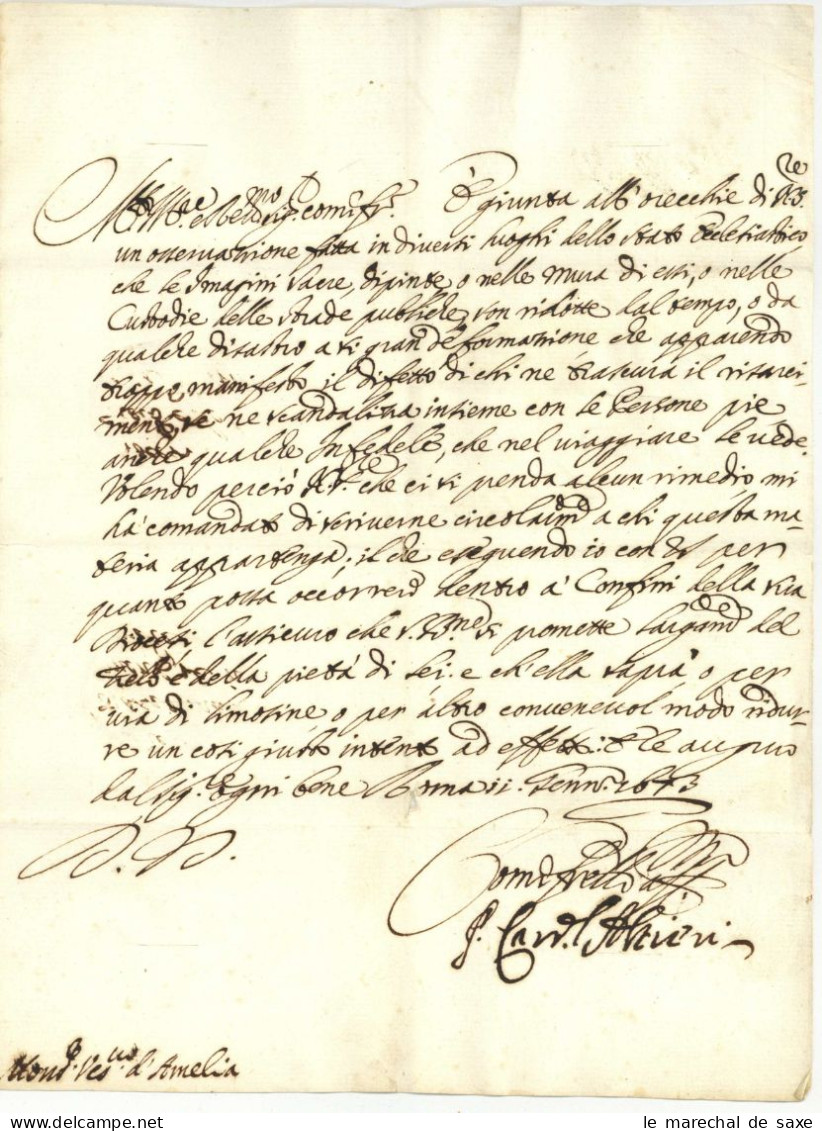 Ill.re e R.mo Sig.r come fr.llo. È giunta all' orecchie di N.S.re
un osservazione fatta in diversi luoghi dello stato Ecclesiastico,
che le Imagini sacre, dipinte o nelle mura di essi, o nelle
Custodie delle strade publiche, son ridotte dal tempo, o da
qualche disastro a sì gran deformazione che apparendo
troppo manifesto il difetto di chi ne trascura il risarci-
mento, se ne scandaliza insieme con le Persone pie
anche qualche Infedele, che nel viaggiare le vede.
Volendo perciò N.S.re che ci si prenda alcun rimedio mi
hà comandato di scriverne circolarm.te a chi questa ma-
teria appartenga; il che eseguendo io con V.S. per
quanto possa occorrere dentro a' Confini della sua
Diocesi l'assicuro che S. B.ne si promette largam.te del
zelo e della pietà di lei. e ch'ella saprà o per
via di limosine, o per altro convenevol modo ridur-
re un così giusto intento ad effetto: E le auguro
dal Sig.re ogni bene Roma 11. Genn.o 1673
D. V.S.
Come fr.ello aff.mo
P. Card.l Altieri
Mons.r Vesc.vo d'Amelia
le marechal de saxe